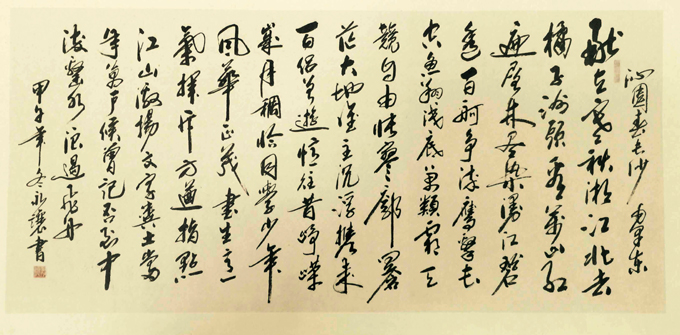 沁园春长沙 毛泽东
独立寒秋湘江北去
橘子洲头看万山红
遍层林尽染漫江碧
透百舸争流鹰击长
空鱼翔浅底万类霜天
競自由怅寥廓
茫大地谁主沉浮携来
百侣曾遊忆往昔峥嵘
岁月稠恰同学少年
风华正茂书生意
氣挥斥方遒指點
江山激扬文字粪土當
年萬户侯曾记否到中
流擊水浪遏飞舟
甲午年冬永讓書